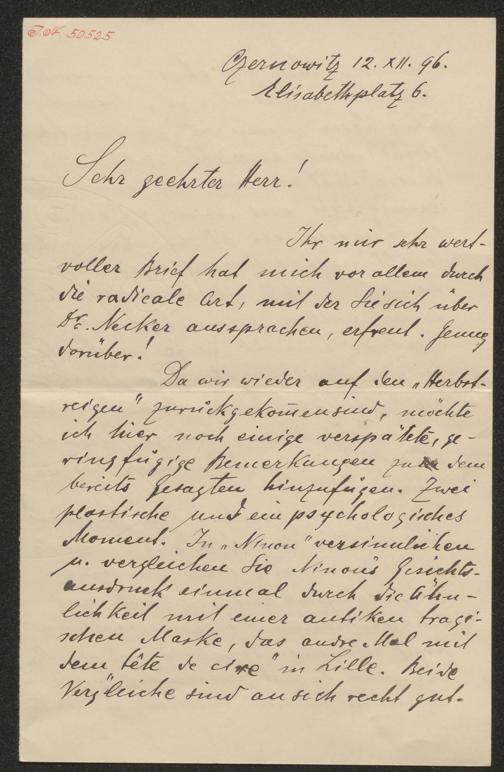 I.N. 50525
Czernowitz 12. XII. 96.
Elisabethplatz 6.
Sehr geehrter Herr!
Ihr mir sehr wert-
voller Brief hat mich vor allem durch
die radicale Art, mit der Sie sich über
Dr. Necker aussprachen, erfreut. Genug
darüber!
Da wir wieder auf den „Herbst-
reigen" zurückgekom̄en sind, möchte
ich hier noch einige verspätete, ge-
ringfügige Bemerkungen zu dem
bereits Gesagten hinzufügen. Zwei
plastische und ein psychologisches
Moment. In „Ninon" versinnlichen
u. vergleichen Sie Ninons Gesichts-
ausdruck einmal durch die Ähn-
lichkeit mit einer antiken tragi-
schen Maske, das andre Mal mit
dem tête de cire" in Lille. Beide
Vergleiche sind an sich recht gut.